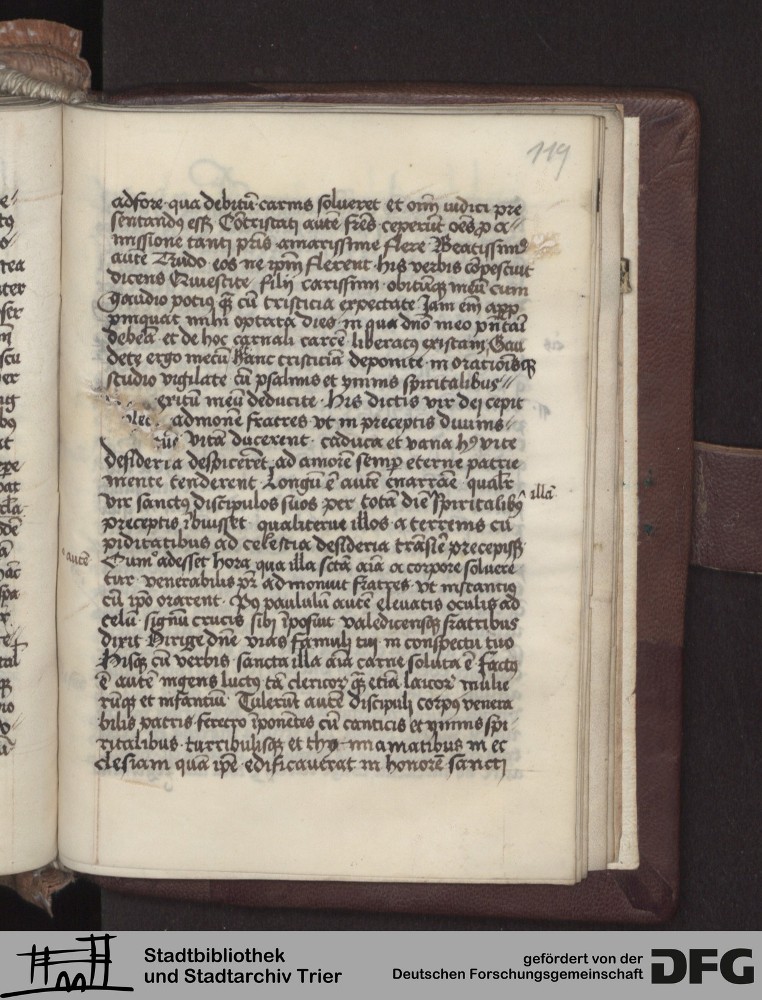 119
adfore qua debitū carnis solueret et om̄i iudici pre
sentandus esset Cōtristati autē fr̄es ceperūt oēs p a
missione tanti pr̄is amarissime flere Beatissimus
autē Trudo eos ne ip̄m flerent his verbis cōpescuit
dicens Quiescite filij carissimi obitūqꝫ meū cum
gaudio potius qꝫ cū tristicia expectate Iam em̄ app
pinquat mihi optata dies in qua dn̄o meo pn̄tari
debeā et de hoc carnali carcē liberatus existam Gau
dete ergo mecū hanc tristiciā deponite in orationisqꝫ
studio vigilate cū psalmis et ymnis spiritalibus
eritū meū deducite His dictis vir dei cepit
admonē fratres vt in preceptis diuinis
vitā ducerent caduca et vana hꝰ vite
desideria despicerēt ad amorē semp eterne patrie
mente tenderent Longū ē autē enarrāe qualr̄
vir sanctus discipulos suos per totā diē illā spiritalibꝰ
preceptis ībuisset qualiterue illos a terrenis cu
piditatibus ad celestia desideria trāsire precepisset
autē
Cum adesset hora qua illa sctā aīa a corpore soluere
tur venerabilis pr̄ admonuit fratres vt instantius
cū ip̄o orarent Pꝰ paululū autē eleuatis oculis ad
celū signū crucis sibi īposuit valedicensqꝫ fratribus
dixit Dirige dn̄e vias famuli tui in conspectu tuo
Hisqꝫ cū verbis sancta illa aīa carne soluta ē Factus
ē autē ingens luctus tā clericoꝝ qꝫ etiā laicoꝝ mulie
rūqꝫ et infantiū Tulerūt autē discipuli corpus venera
bilis patris feretro īponētes cū canticis et ymnis spi
ritalibus turribulisqꝫ et thymiamatibus in ec
clesiam quā ipē edificauerat in honorē sancti
Stadtbibliothek
und Stadtarchiv Trier
gefördert von der
Deutschen Forschungsgemeinschaft
DFG